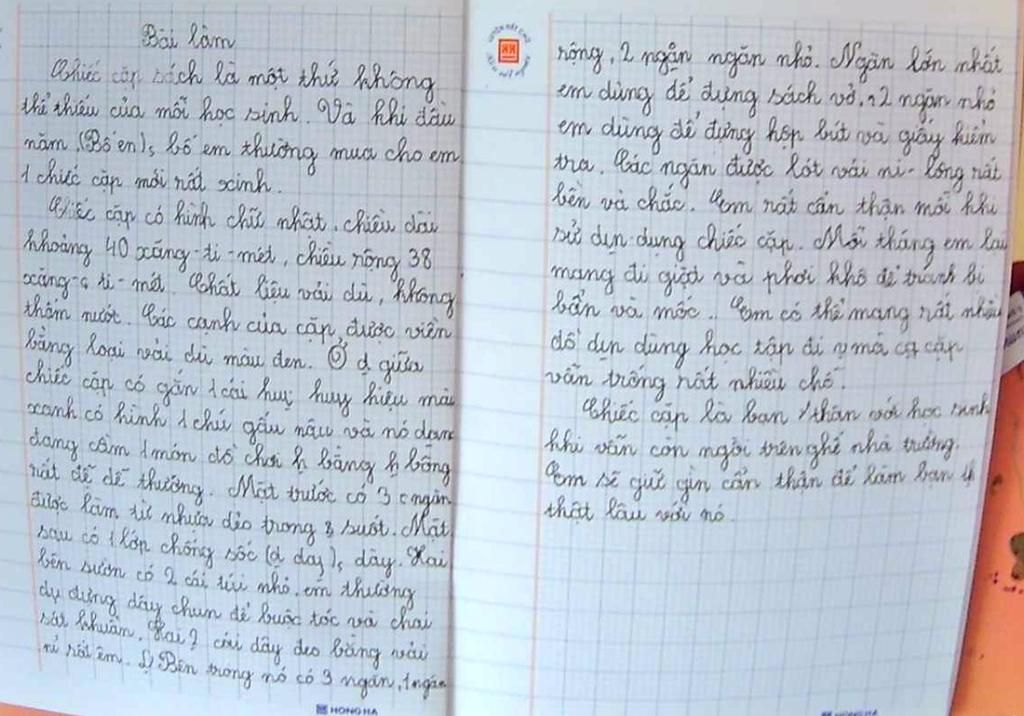 Bài làm
Chiếc cặp sách là một thứ không
thể thiếu của mỗi học sinh. Và khi đầu
năm, (Bố en), bố em thường mua cho em
1 chiếc cặp mới rất xinh.
Chiếc cặp có hình chữ nhật, chiều dài
khoảng 40 xăng-ti-mét, chiều rộng 38
xăng-ti-mét. Chất liệu vải dù, không
thấm nước. Các cạnh của cặp được viền
bằng loại vải dù màu đen. Ở giữa
chiếc cặp có gắn 1 cái huy huy hiệu màu
xanh có hình 1 chú gấu nâu và nó đang
đang cầm 1 món đồ chơi h bằng h bông
rất dễ dễ thương. Mặt trước có 3 c ngăn
được làm từ nhựa dẻo trong suốt. Mặt
sau có 1 lớp chống sốc (d day), dày. Hai
bên sườn có 2 cái túi nhỏ, em thường
dụ đựng dây chun để buộc tóc và chai
sát khuẩn. Hai 2 cái dây đeo bằng vải
nỉ rất êm. Bên trong nó có 3 ngăn, 1 ngăn
HONG HA
rộng, 2 ngăn ngăn nhỏ. Ngăn lớn nhất
em dùng để đựng sách vở, 2 ngăn nhỏ
em dùng để đựng hộp bút và giấy kiểm
tra. Các ngăn được lót vải ni-lông rất
bền và chắc. Em rất cẩn thận mỗi khi
sử dụn dụng chiếc cặp. Mỗi tháng em lại
mang đi giặt và phơi khô để tránh bị
bẩn và mốc. Em có thể mang rất nhiều
đồ dụn dùng học tập đi mà cặp
vẫn trống rất nhiều chỗ.
Chiếc cặp là bạn thân với học sinh
khi vẫn còn ngồi trên ghế nhà trường.
Em sẽ giữ gìn cẩn thận để làm bạn
thật lâu với nó.
HONG HA